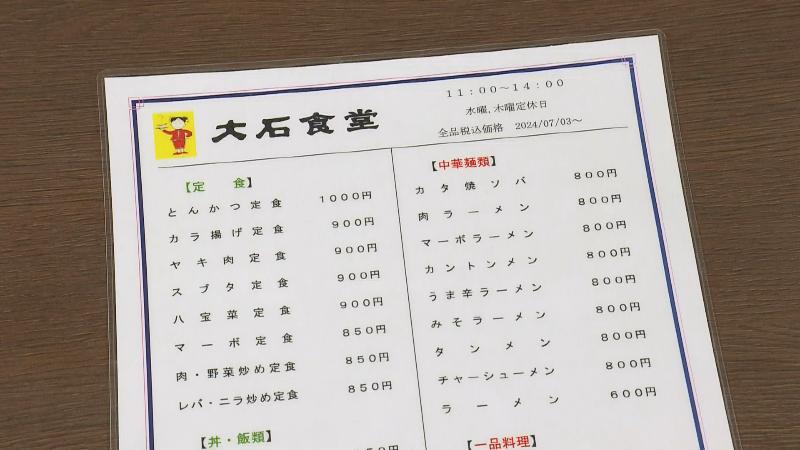 大石食堂
11:00～14:00
水曜,木曜定休日
全品税込価格 2024/07/03～
【定 食】
とんかつ定食 1000円
カラ揚げ定食 900円
ヤキ肉定食 900円
スブタ定食 900円
八宝菜定食 900円
マーボ定食 850円
肉・野菜炒め定食 850円
レバ・ニラ炒め定食 850円
【丼・飯類】
【中華麺類】
カタ焼ソバ 800円
肉ラーメン 800円
マーボラーメン 800円
カントンメン 800円
うま辛ラーメン 800円
みそラーメン 800円
タンメン 800円
チャーシューメン 800円
ラーメン 600円
【一品料理】